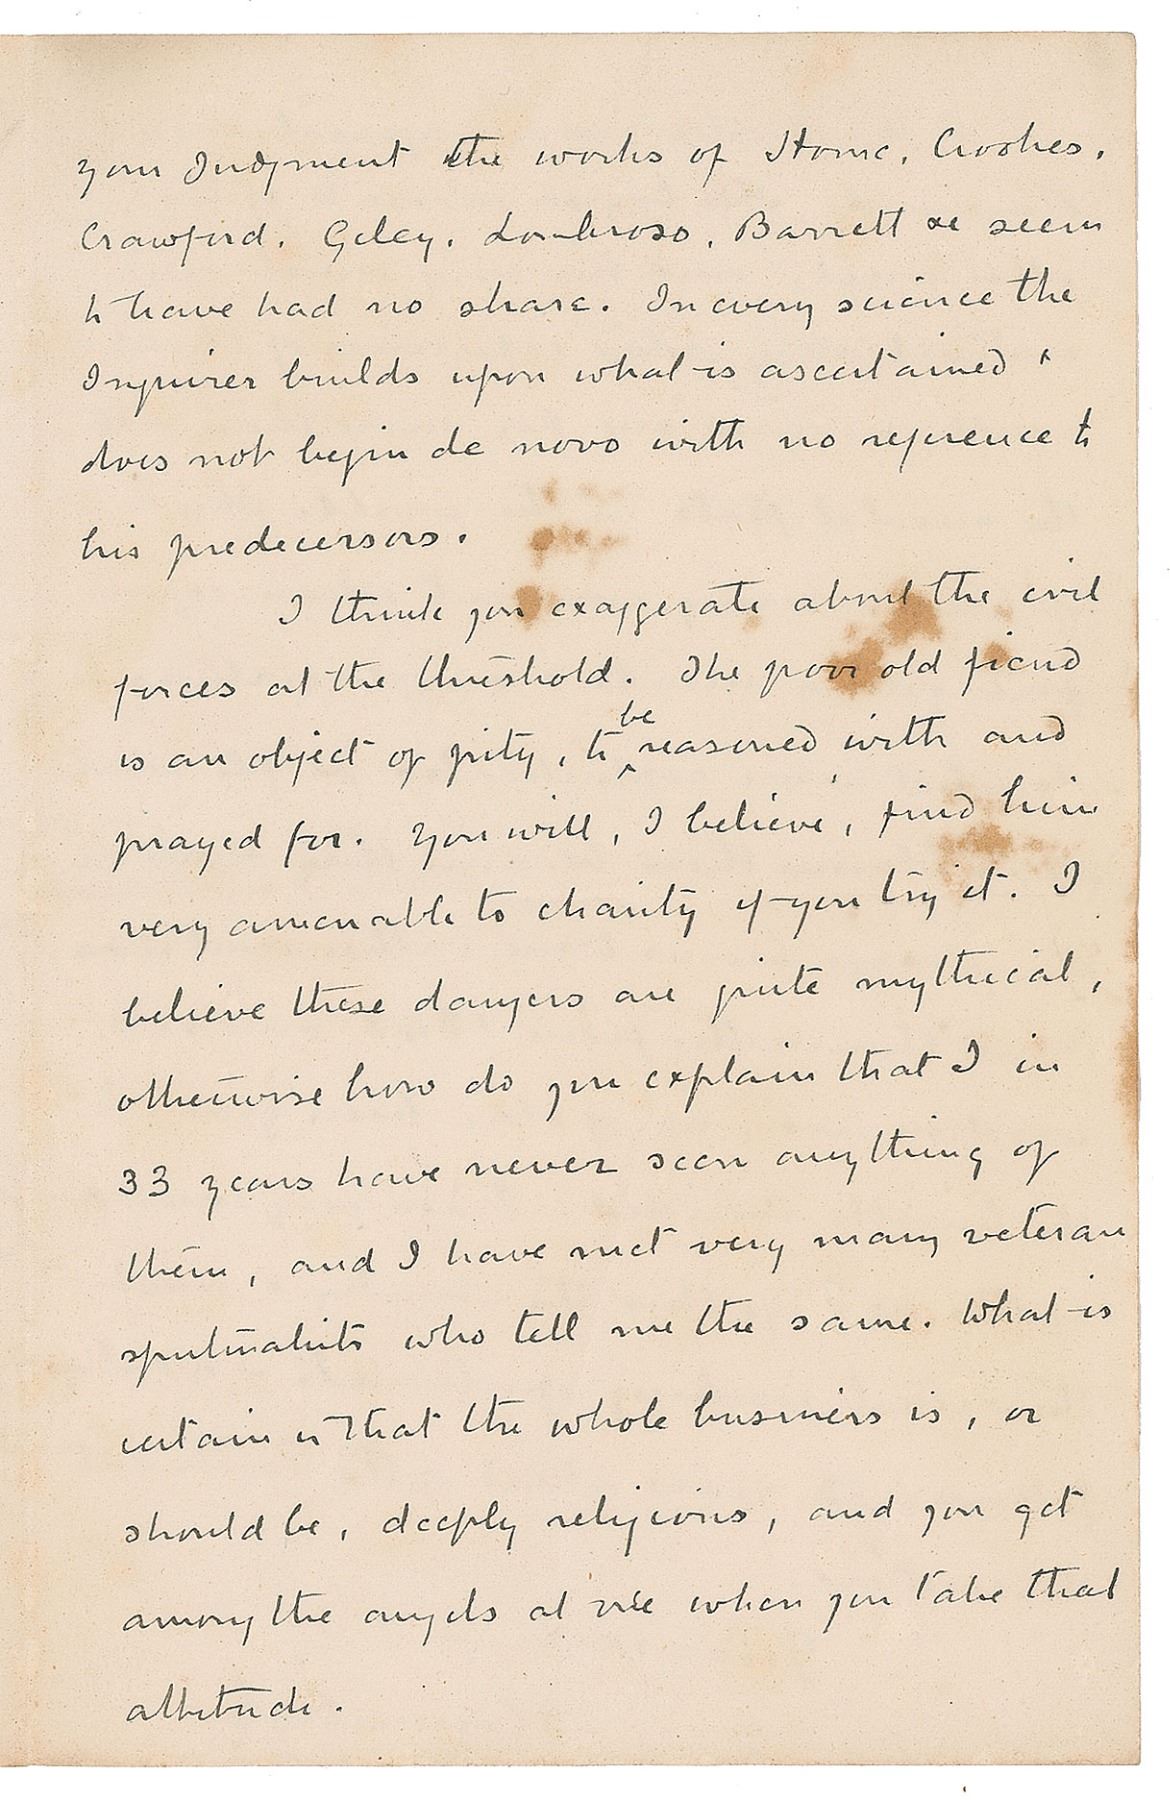 your Judgment the works of Home, Crookes,
Crawford, Geley, Lombroso, Barrett &c seem
to have had no share. In every science the
Inquirer builds upon what is ascertained &
does not begin de novo with no reference to
his predecessors.
I think you exaggerate about the evil
forces at the threshold. The poor old fiend
is an object of pity, to be reasoned with and
prayed for. You will, I believe, find him
very amenable to charity if you try it. I
believe these dangers are quite mythical,
otherwise how do you explain that I in
33 years have never seen anything of
them, and I have met very many veteran
spiritualists who tell me the same. What is
certain is that the whole business is, or
should be, deeply religious, and you get
among the angels at once when you take that
attitude.